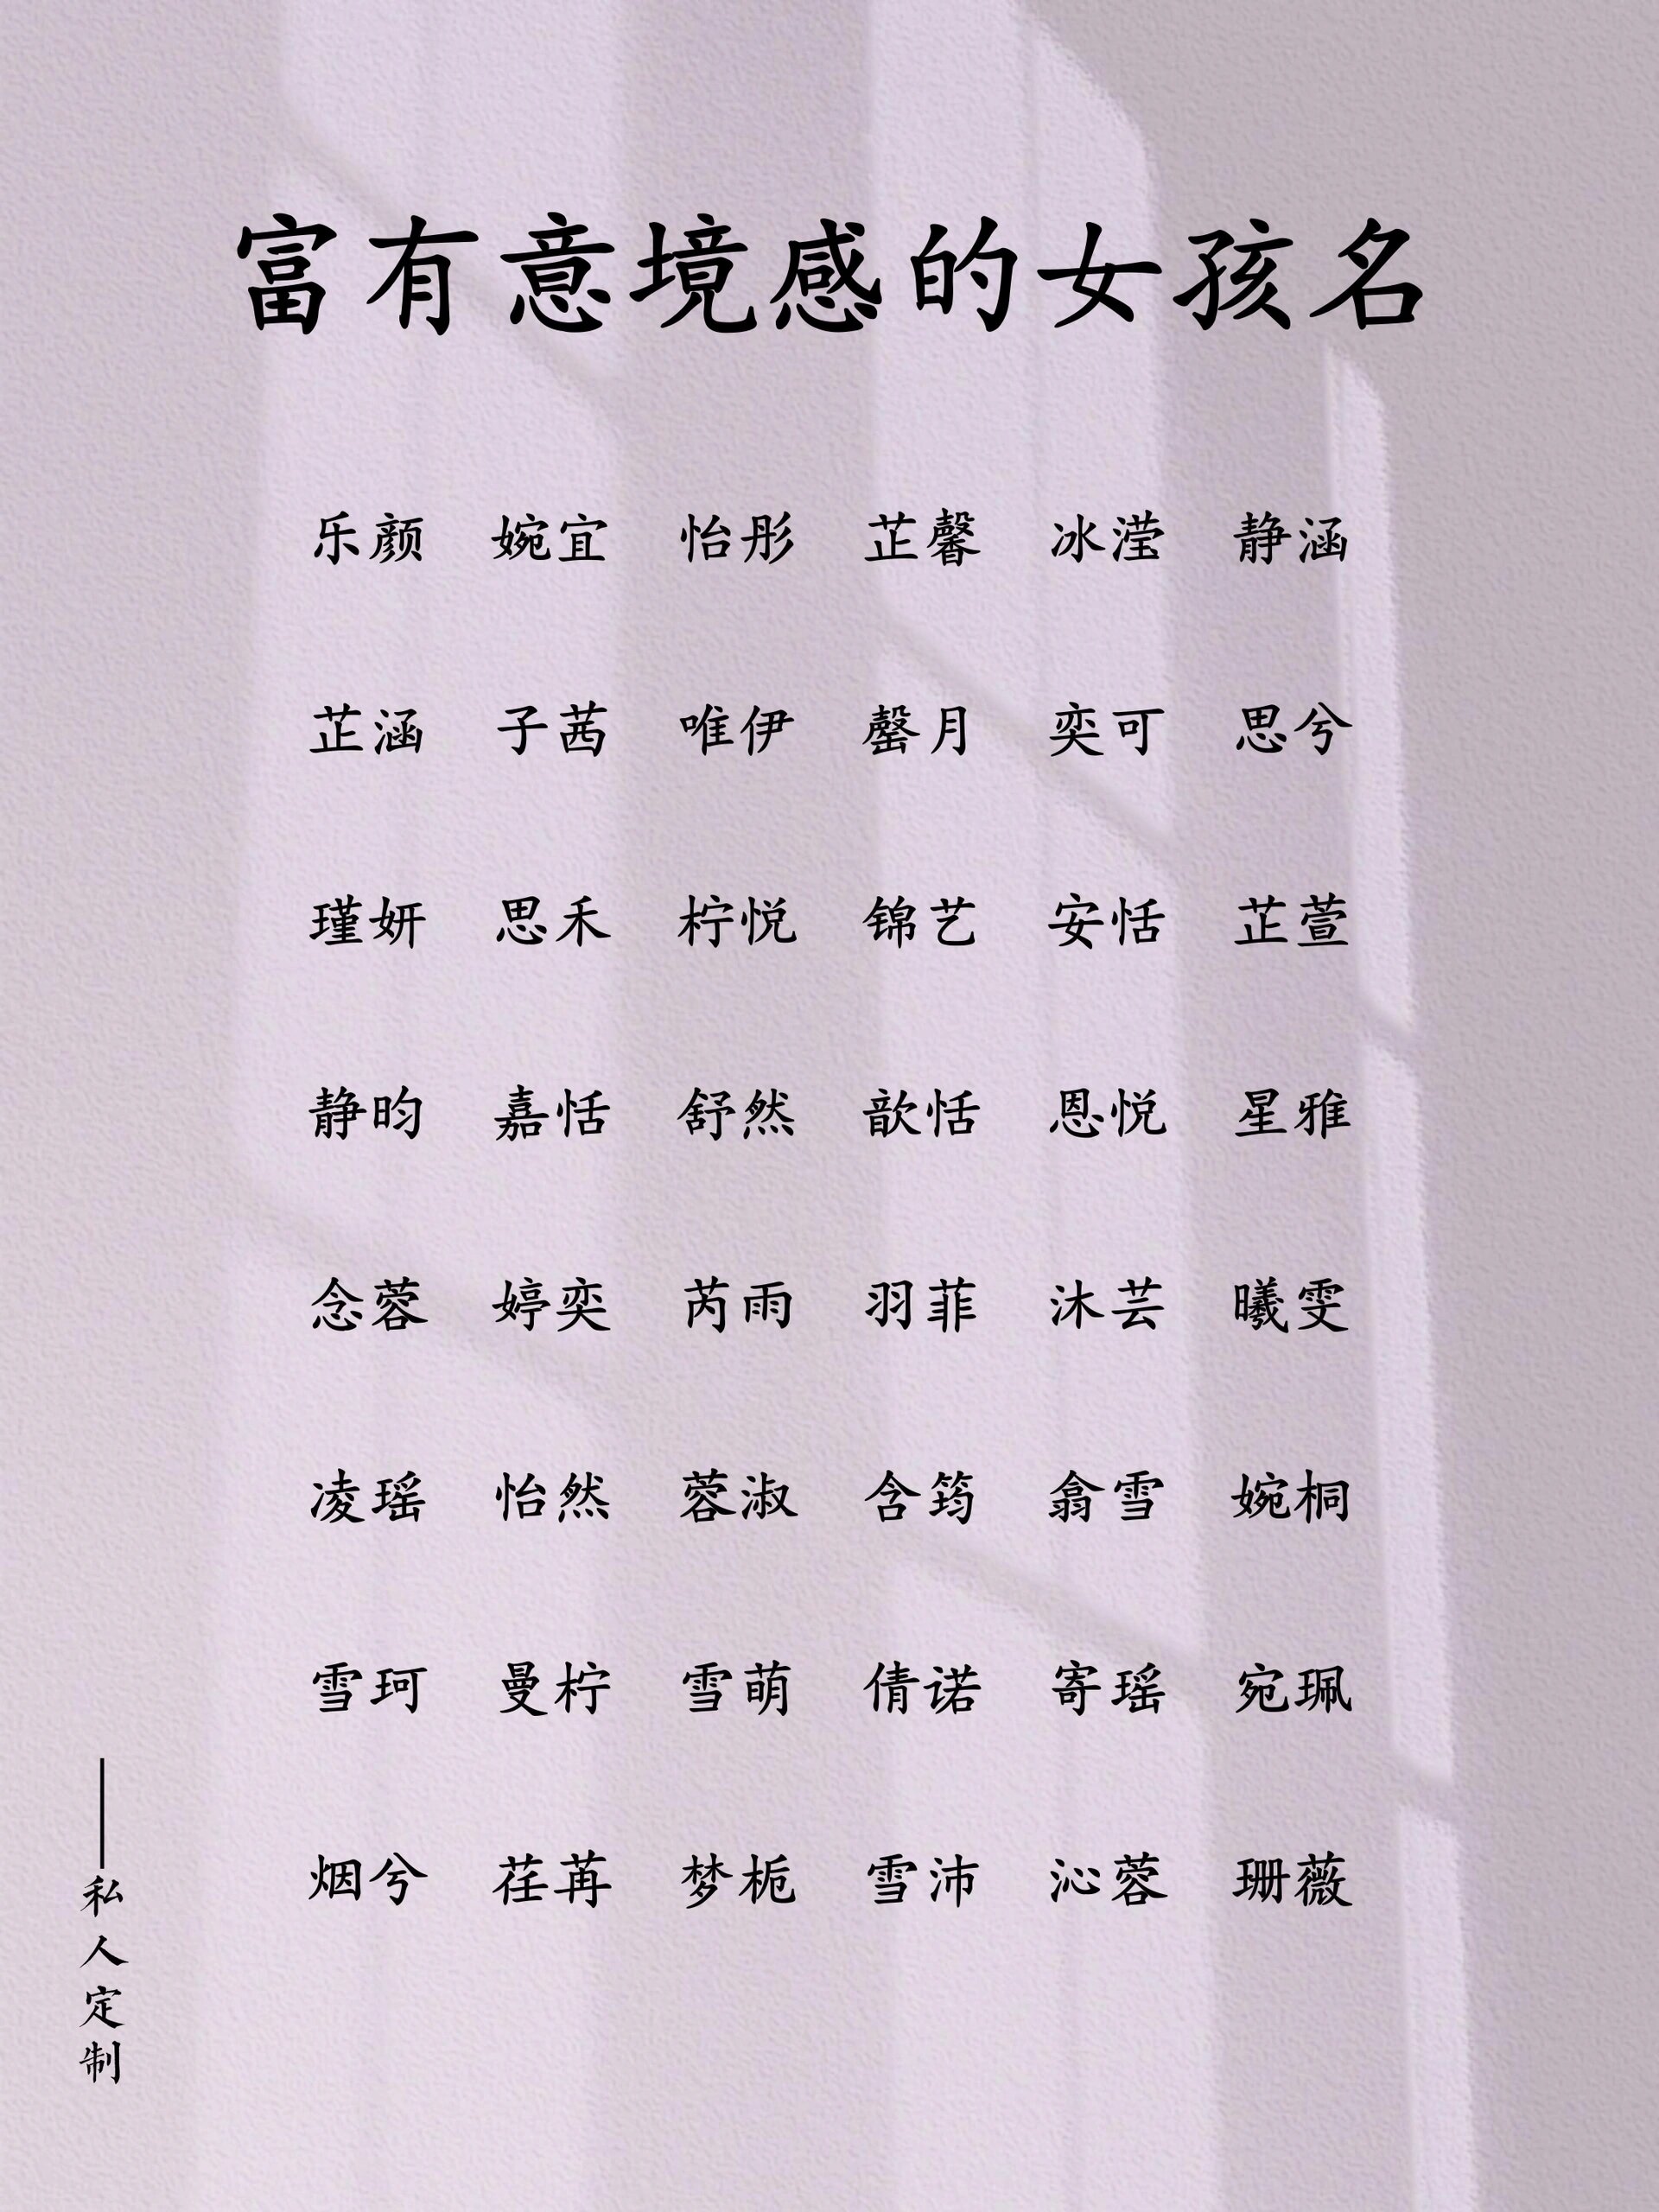 富有意境感的女孩名
乐颜 婉宜 怡彤 芷馨 冰滢 静涵
芷涵 子茜 唯伊 罄月 奕可 思兮
瑾妍 思禾 柠悦 锦艺 安恬 芷萱
静昀 嘉恬 舒然 歆恬 恩悦 星雅
念蓉 婷奕 芮雨 羽菲 沐芸 曦雯
凌瑶 怡然 蓉淑 含筠 翕雪 婉桐
雪珂 曼柠 雪萌 倩诺 寄瑶 宛珮
烟兮 荏苒 梦栀 雪沛 沁蓉 珊薇
——私人定制